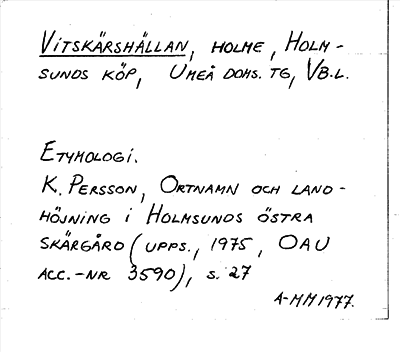 VITSKÄRSHÄLLAN, HOLME, HOLM-
SUNDS KÖP, UMEÅ DOMS. TG, VB.L.
ETYMOLOGI.
K. PERSSON, ORTNAMN OCH LAND-
HÖJNING I HOLMSUNDS ÖSTRA
SKÄRGÅRD (UPPS., 1975, OAU
ACC.-NR 3590), S. 27
A-MM 1977.